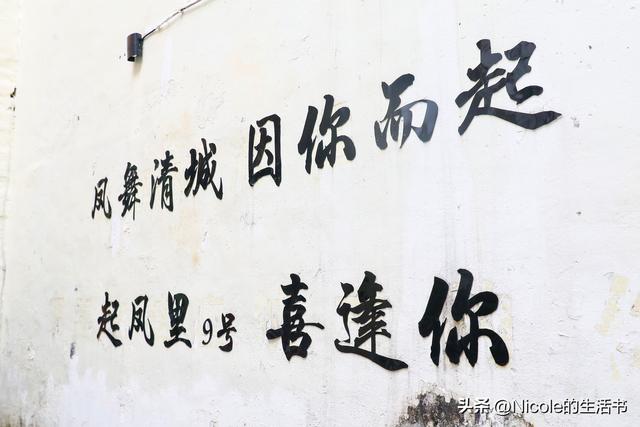 凤舞清城因你而起
起凤里9号喜逢你
头条 @Nicole的生活书